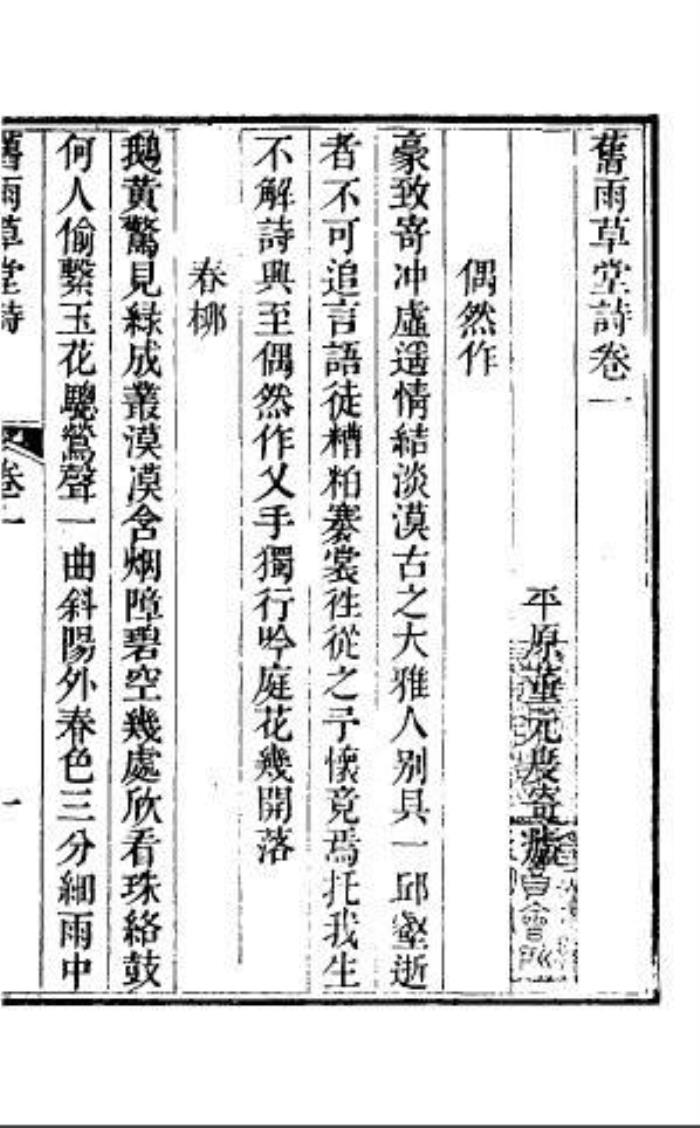 舊雨草堂詩卷一
平原董元度寄廬
偶然作
豪致寄冲虛遥情結淡漠古之大雅人别具一邱壑逝
者不可追言語徒糟粕褰裳往從之予懷竟焉托我生
不解詩興至偶然作乂手獨行吟庭花幾開落
春栁
鵝黄驚見綠成叢漠漠含烟障碧空幾處欣看珠絡鼓
何人偷繫玉花驄鶯聲一曲斜陽外春色三分細雨中
舊雨草堂詩
卷一
一